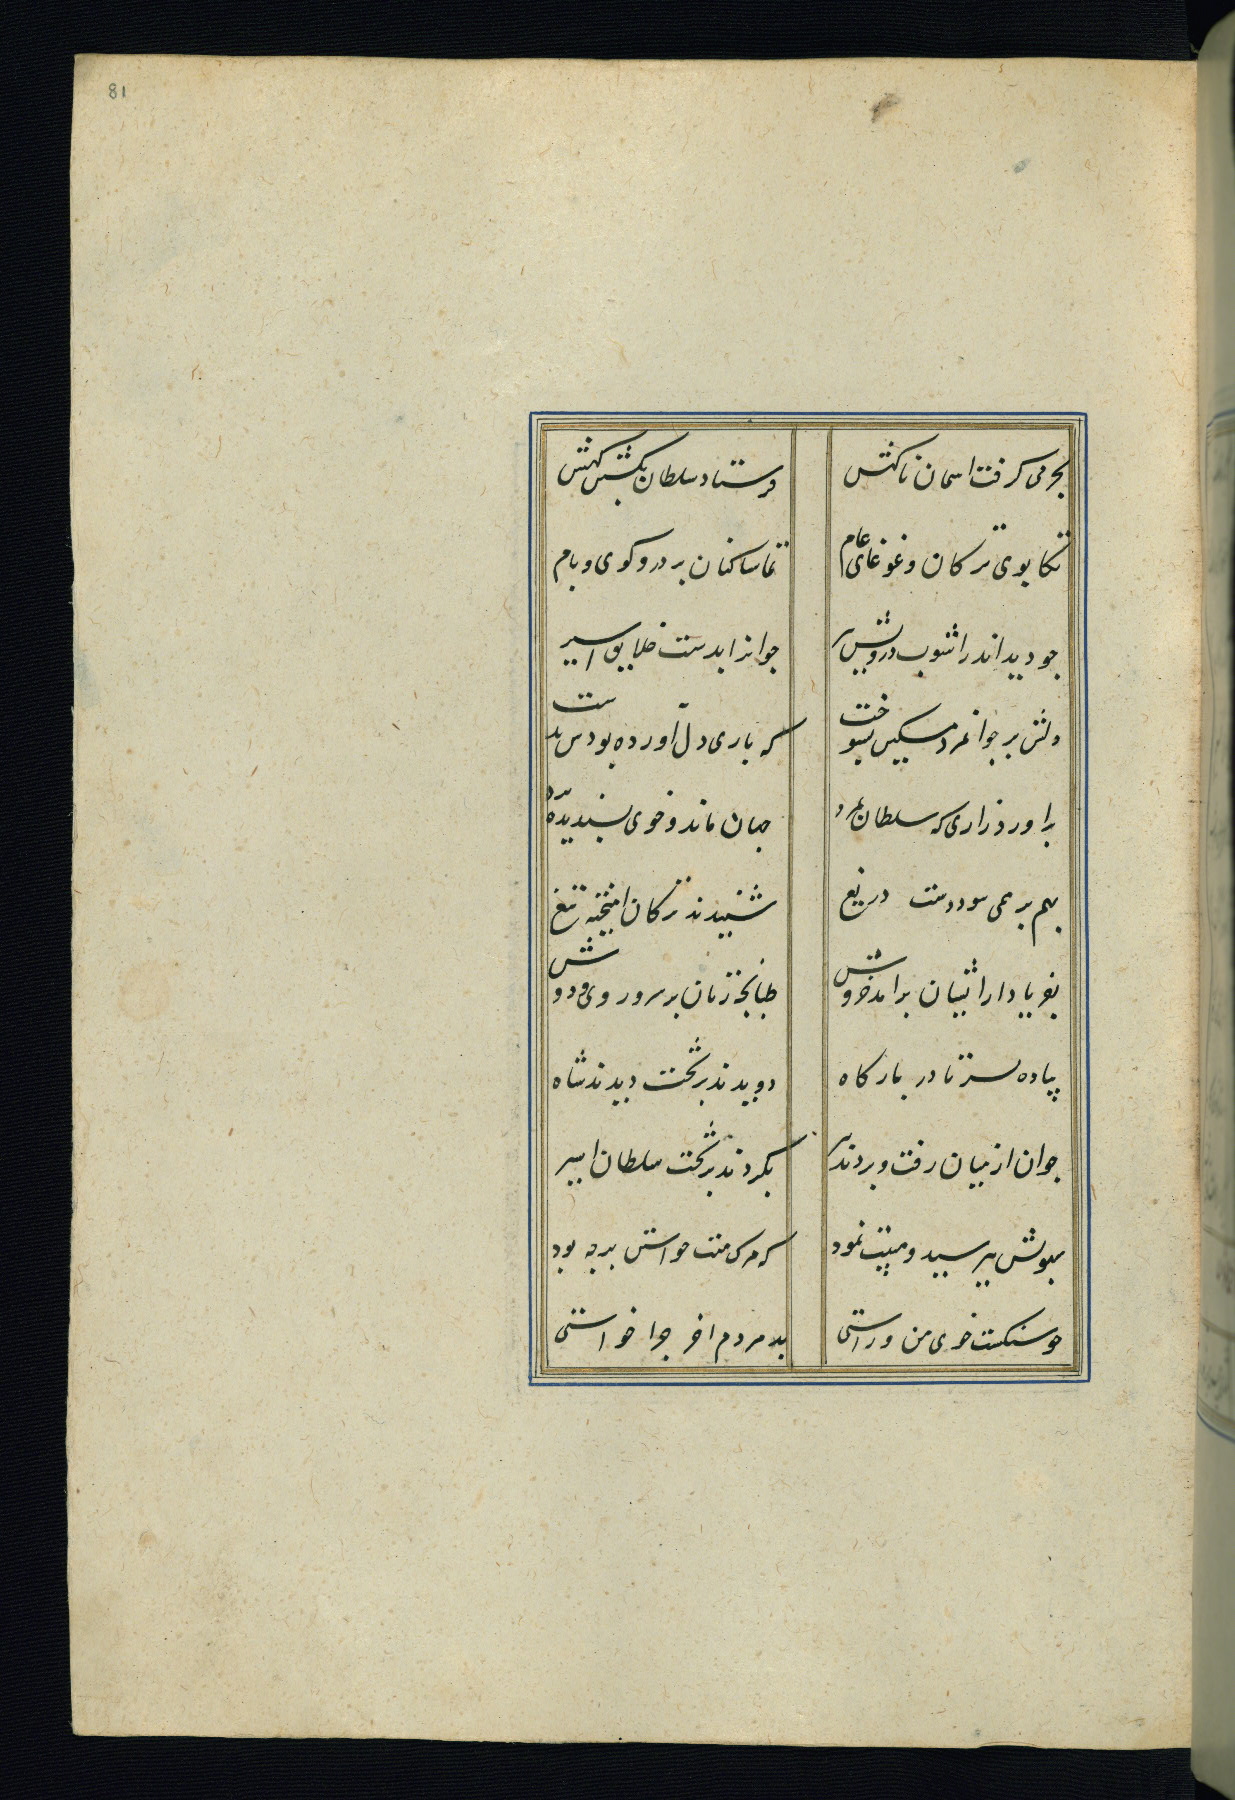 81
بجرمی گرفت اسمان ناکهش فرستاد سلطان بکشتن کهش
تکاپوی ترکان و غوغای عام تماشاکنان بر در و کوی و بام
چو دید اندر اشوب درویش پیر جوانرا بدست خلایق اسیر
دلش بر جوانمرد مسکین بسوخت که باری دل اورده بودس بدست
براورد زاری که سلطان بمرد جهان ماند و خوی پسندیده برد
بهم بر همی سود دست دریغ شنیدند ترکان اهیخته تیغ
بفریاد ازایشان برامد خروش طبانجه زنان بر سر و روی و دوش
پیاده بسر تا در بارکاه دویدند بر تخت دیدند شاه
جوان از میان رفت و بردند پیر بکردند بر تخت سلطان اسیر
بهولش بپرسید و هیبت نمود که مرک منت خواستن بر چه بود
چو نیکست خوی من و راستی بد مردم اخر چرا خواستی